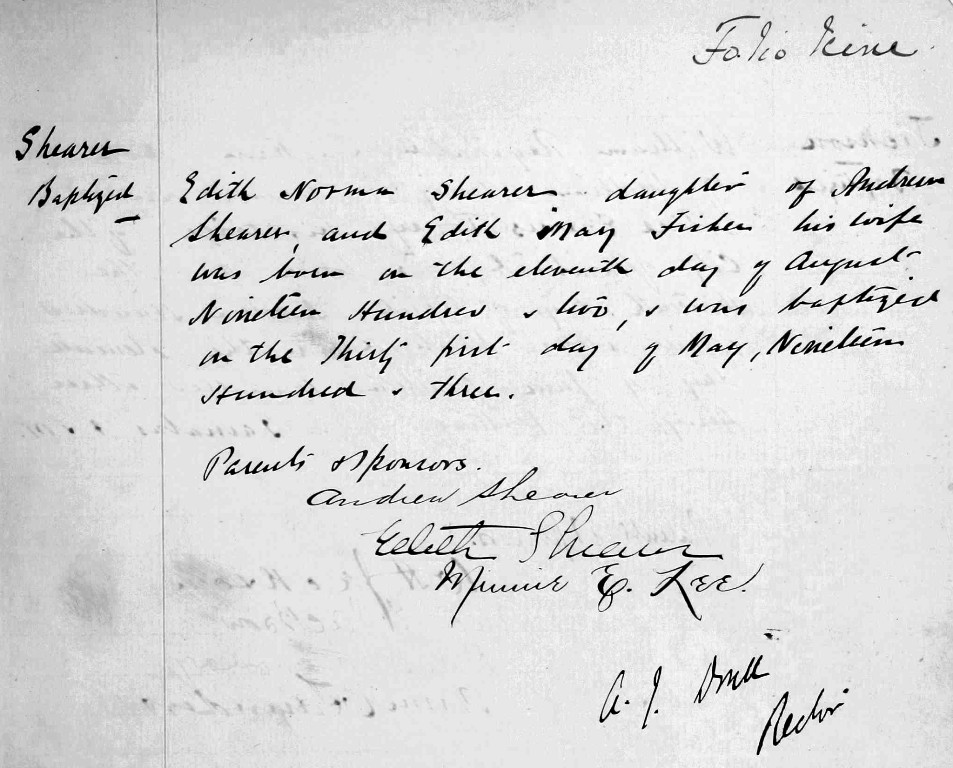 Folio Nine
Shearer
Baptized
Edith Norma Shearer daughter of Andrew
Shearer, and Edith May Fisher his wife
was born on the eleventh day of August
Nineteen Hundred & two, & was baptized
on the Thirty first day of May, Nineteen
Hundred & three.
Parents & Sponsors.
Andrew Shearer
Edith Shearer
Minnie E. Kee.
A. J. Doull
Rector